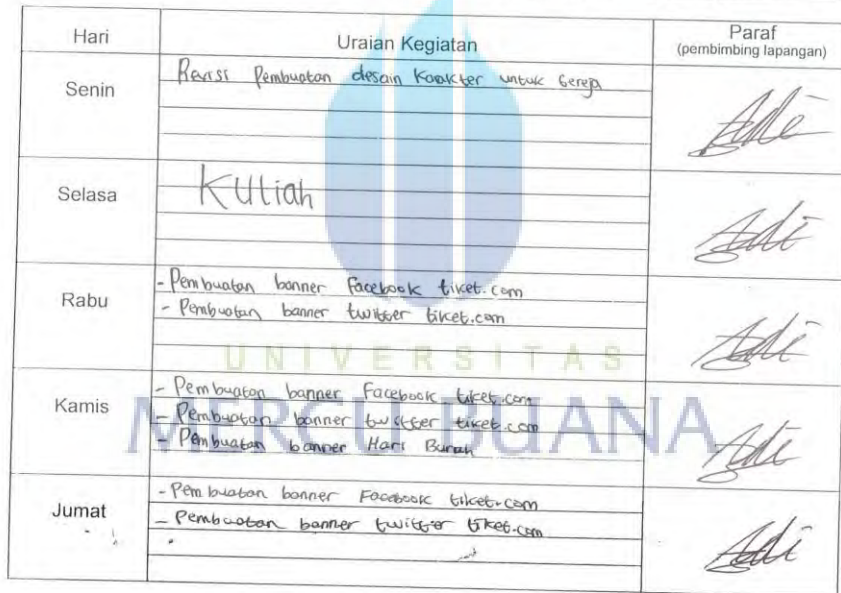 Hari Uraian Kegiatan Paraf
(pembimbing lapangan)
Senin Revisi Pembuatan desain Karakter untuk Gereja
Adi
Selasa Kuliah
Adi
Rabu - Pembuatan banner Facebook tiket.com
- Pembuatan banner twitter tiket.com
Adi
UNIVERSITAS
Kamis - Pembuatan banner Facebook tiket.com
- Pembuatan banner twitter tiket.com
- Pembuatan banner Hari Buruh
MERCU BUANA
Adi
Jumat - Pembuatan banner Facebook tiket.com
- Pembuatan banner twitter tiket.com
Adi